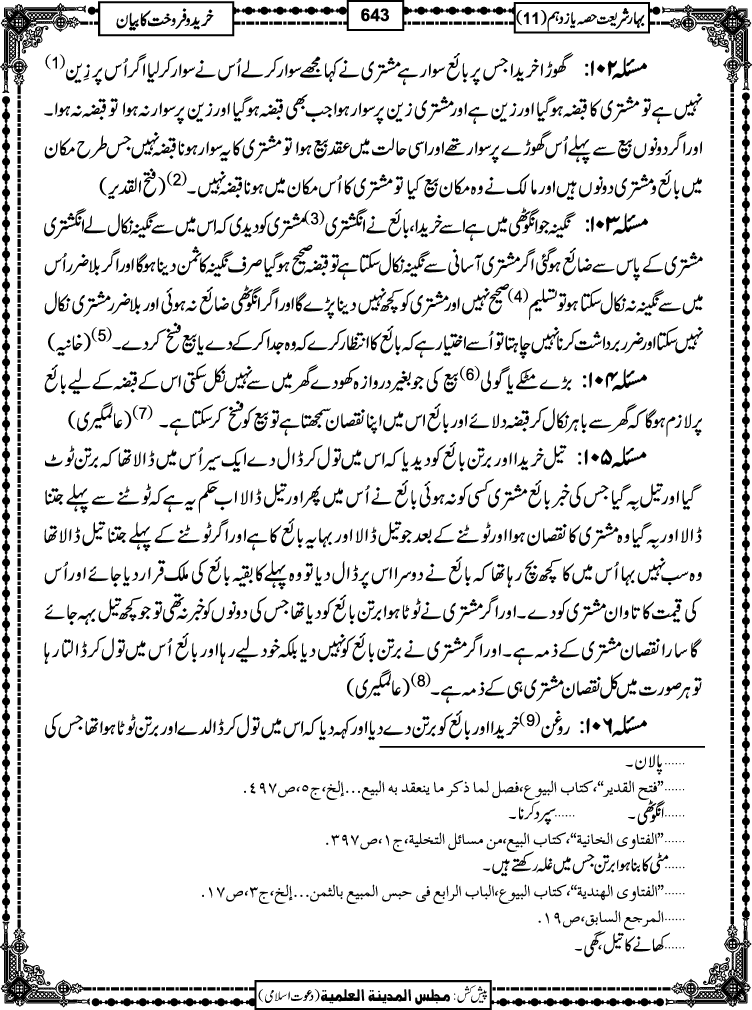 بہار شریعت حصہ یازدہم (11)
643
خرید و فروخت کا بیان
مسئلہ ۱۰۲: گھوڑا خریدا جس پر بائع سوار ہے مشتری نے کہا مجھے سوار کر لے اُس نے سوار کر لیا اگر اُس پر زین (1)
نہیں ہے تو مشتری کا قبضہ ہو گیا اور زین ہے اور مشتری زین پر سوار ہوا جب بھی قبضہ ہو گیا اور زین پر سوار نہ ہوا تو قبضہ نہ ہوا۔
اور اگر دونوں بیع سے پہلے اُس گھوڑے پر سوار تھے اور اسی حالت میں عقد بیع ہوا تو مشتری کا یہ سوار ہونا قبضہ نہیں جس طرح مکان
میں بائع و مشتری دونوں ہیں اور مالک نے وہ مکان بیع کیا تو مشتری کا اُس مکان میں ہونا قبضہ نہیں۔ (2) (فتح القدیر)
مسئلہ ۱۰۳: نگینہ جو انگوٹھی میں ہے اسے خریدا، بائع نے انگشتری (3) مشتری کو دیدی کہ اس میں سے نگینہ نکال لے انگشتری
مشتری کے پاس سے ضائع ہوگئی اگر مشتری آسانی سے نگینہ نکال سکتا ہے تو قبضہ صحیح ہو گیا صرف نگینہ کا ثمن دینا ہوگا اور اگر بلا ضرر اُس
میں سے نگینہ نہ نکال سکتا ہو تو تسلیم (4) صحیح نہیں اور مشتری کو کچھ نہیں دینا پڑے گا اور اگر انگوٹھی ضائع نہ ہوئی اور بلا ضرر مشتری نکال
نہیں سکتا اور ضرر برداشت کرنا نہیں چاہتا تو اُسے اختیار ہے کہ بائع کا انتظار کرے کہ وہ جدا کر کے دے یا بیع فسخ کر دے۔ (5) (خانیہ)
مسئلہ ۱۰۴: بڑے مٹکے یا گولی (6) بیع کی جو بغیر دروازہ کھودے گھر میں سے نہیں نکل سکتی اس کے قبضہ کے لیے بائع
پر لازم ہوگا کہ گھر سے باہر نکال کر قبضہ دلائے اور بائع اس میں اپنا نقصان سمجھتا ہے تو بیع کو فسخ کر سکتا ہے۔ (7) (عالمگیری)
مسئلہ ۱۰۵: تیل خریدا اور برتن بائع کو دیدیا کہ اس میں تول کر ڈال دے ایک سیر اُس میں ڈالا تھا کہ برتن ٹوٹ
گیا اور تیل بہ گیا جس کی خبر بائع مشتری کسی کو نہ ہوئی بائع نے اُس میں پھر اور تیل ڈالا اب حکم یہ ہے کہ ٹوٹنے سے پہلے جتنا
ڈالا اور بہ گیا وہ مشتری کا نقصان ہوا اور ٹوٹنے کے بعد جو تیل ڈالا اور بہا یہ بائع کا ہے اور اگر ٹوٹنے کے پہلے جتنا تیل ڈالا تھا
وہ سب نہیں بہا اُس میں کا کچھ بچ رہا تھا کہ بائع نے دوسرا اس پر ڈال دیا تو وہ پہلے کا بقیہ بائع کی ملک قرار دیا جائے اور اُس
کی قیمت کا تاوان مشتری کو دے۔ اور اگر مشتری نے ٹوٹا ہوا برتن بائع کو دیا تھا جس کی دونوں کو خبر نہ تھی تو جو کچھ تیل بہہ جائے
گا سارا نقصان مشتری کے ذمہ ہے۔ اور اگر مشتری نے برتن بائع کو نہیں دیا بلکہ خود لیے رہا اور بائع اُس میں تول کر ڈالتا رہا
تو ہر صورت میں کل نقصان مشتری ہی کے ذمہ ہے۔ (8) (عالمگیری)
مسئلہ ۱۰۶: روغن (9) خریدا اور بائع کو برتن دے دیا اور کہہ دیا کہ اس میں تول کر ڈالدے اور برتن ٹوٹا ہوا تھا جس کی
......پالان۔
......”فتح القدیر“، کتاب البیوع، فصل لما ذکر ما ینعقد به البیع...إلخ، ج۵، ص۴۹۷.
......انگوٹھی۔ ......سپرد کرنا۔
......”الفتاوی الخانیة“، کتاب البیع، من مسائل التخلیة، ج۱، ص۳۹۷.
......مٹی کا بنا ہوا برتن جس میں غلہ رکھتے ہیں۔
......”الفتاوی الهندیة“، کتاب البیوع، الباب الرابع فی حبس المبیع بالثمن...إلخ، ج۳، ص۱۷.
......المرجع السابق، ص۱۹.
......کھانے کا تیل، گھی۔
پیش کش: مجلس المدینة العلمیة (دعوت اسلامی)